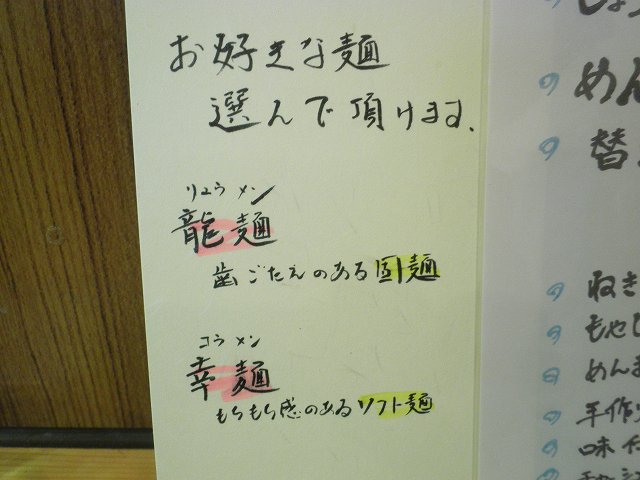 お好きな麺
選んで頂けます.
リュウ メン
龍麺
歯ごたえのある固麺
コウ メン
幸麺
もちもち感のあるソフト麺
めん
替
ねぎ
もやし
めんま
手作り
味付